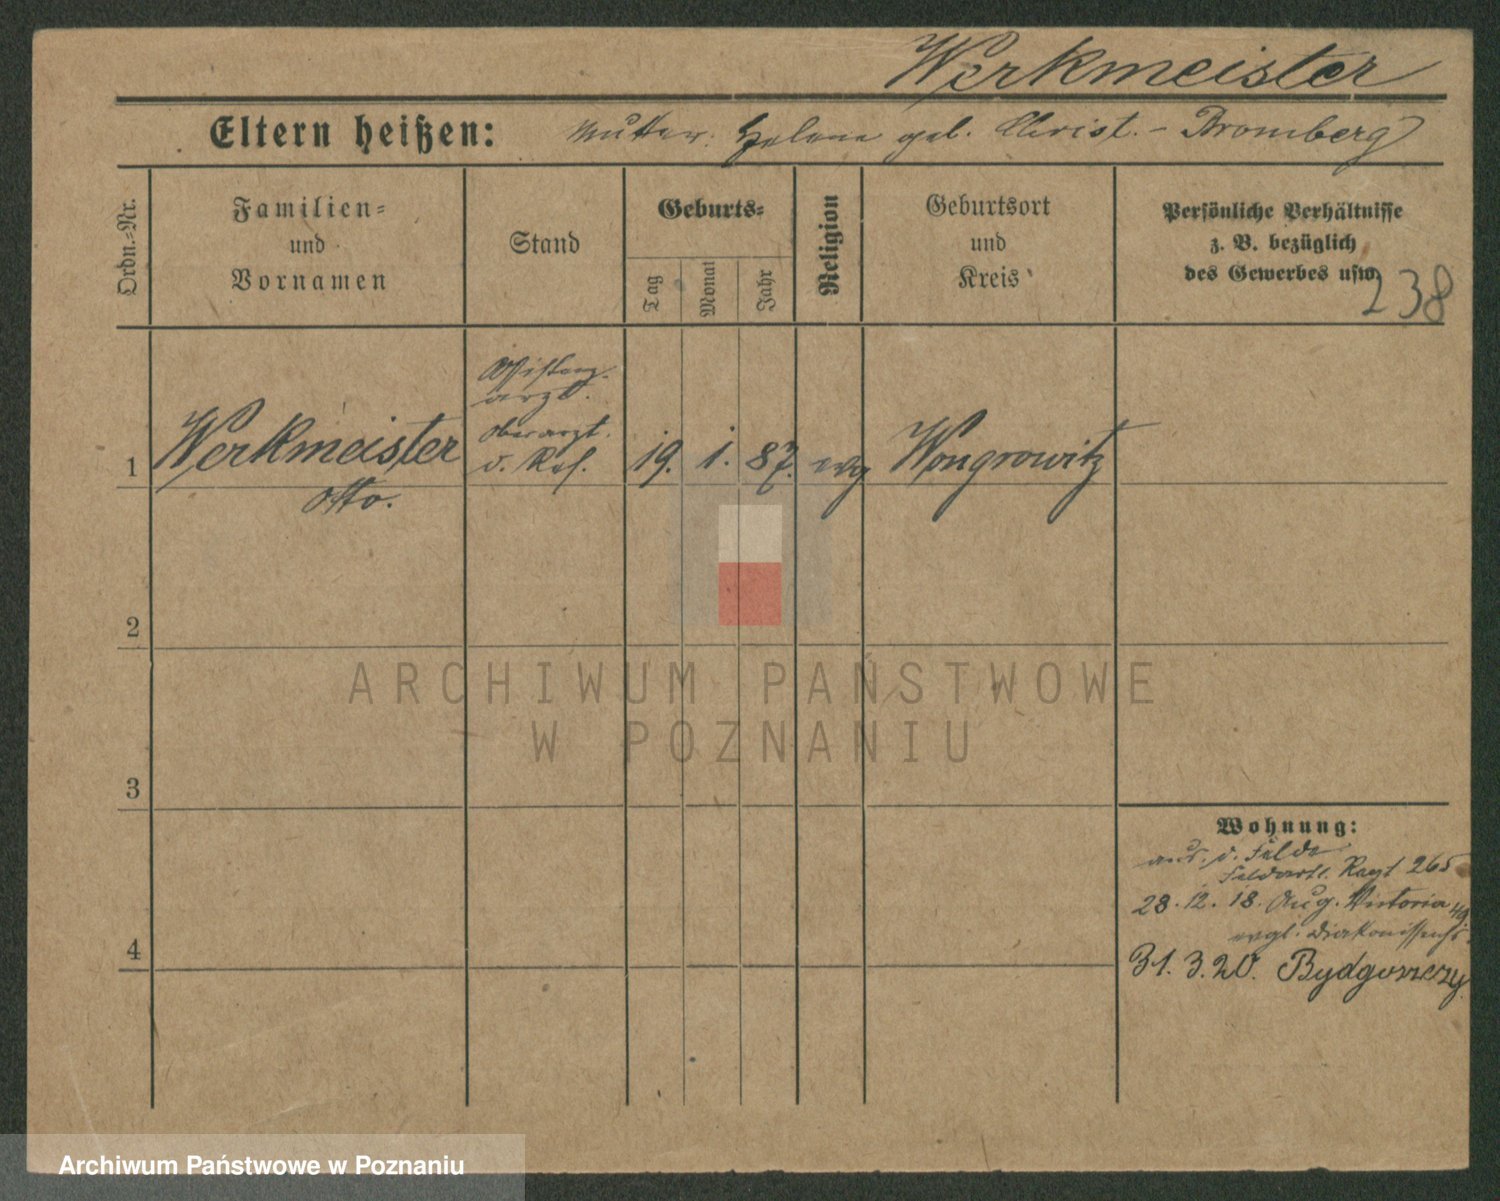 Werkmeister
Eltern heißen: Mutter: Helene geb. Christ. - Bromberg
Ordn.-Nr.
Familien= und Vornamen
Stand
Geburts=
Tag
Monat
Jahr
Religion
Geburtsort und Kreis
Persönliche Verhältnisse
z. B. bezüglich
des Gewerbes usw.
238
Assistenz-
arzt.
Oberarzt.
d. Res.
1 Werkmeister 19. 1. 87. evg Wongrowitz
Otto.
2
3
4
Wohnung:
aus d. Felde
Feldartl. Regt 265
28. 12. 18. Aug. Viktoria
evgl.
31. 3. 20. Bydgoszczy
ARCHIWUM PAŃSTWOWE
W POZNANIU
Archiwum Państwowe w Poznaniu